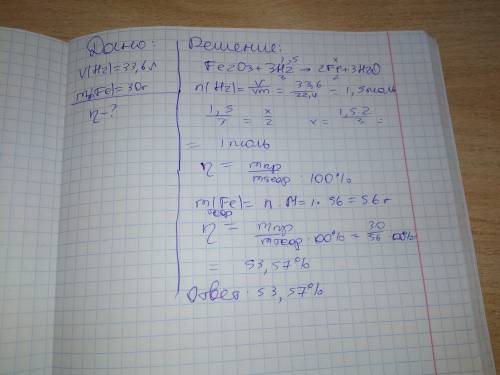 Дано:
V(H2)=33,6л
mпр(Fe)=30г
η-?
Решение:
1,5 x
Fe2O3+3H2→2Fe+3H2O
3 2
n(H2)=V/Vm=33,6/22,4=1,5моль
1,5/3=x/2 x=1,5·2/3=
=1моль
η=mпр/mтеор·100%
m(Fe)=n·M=1·56=56г
теор
η=mпр/mтеор·100%=30/56·100%
=53,57%
Ответ:53,57%